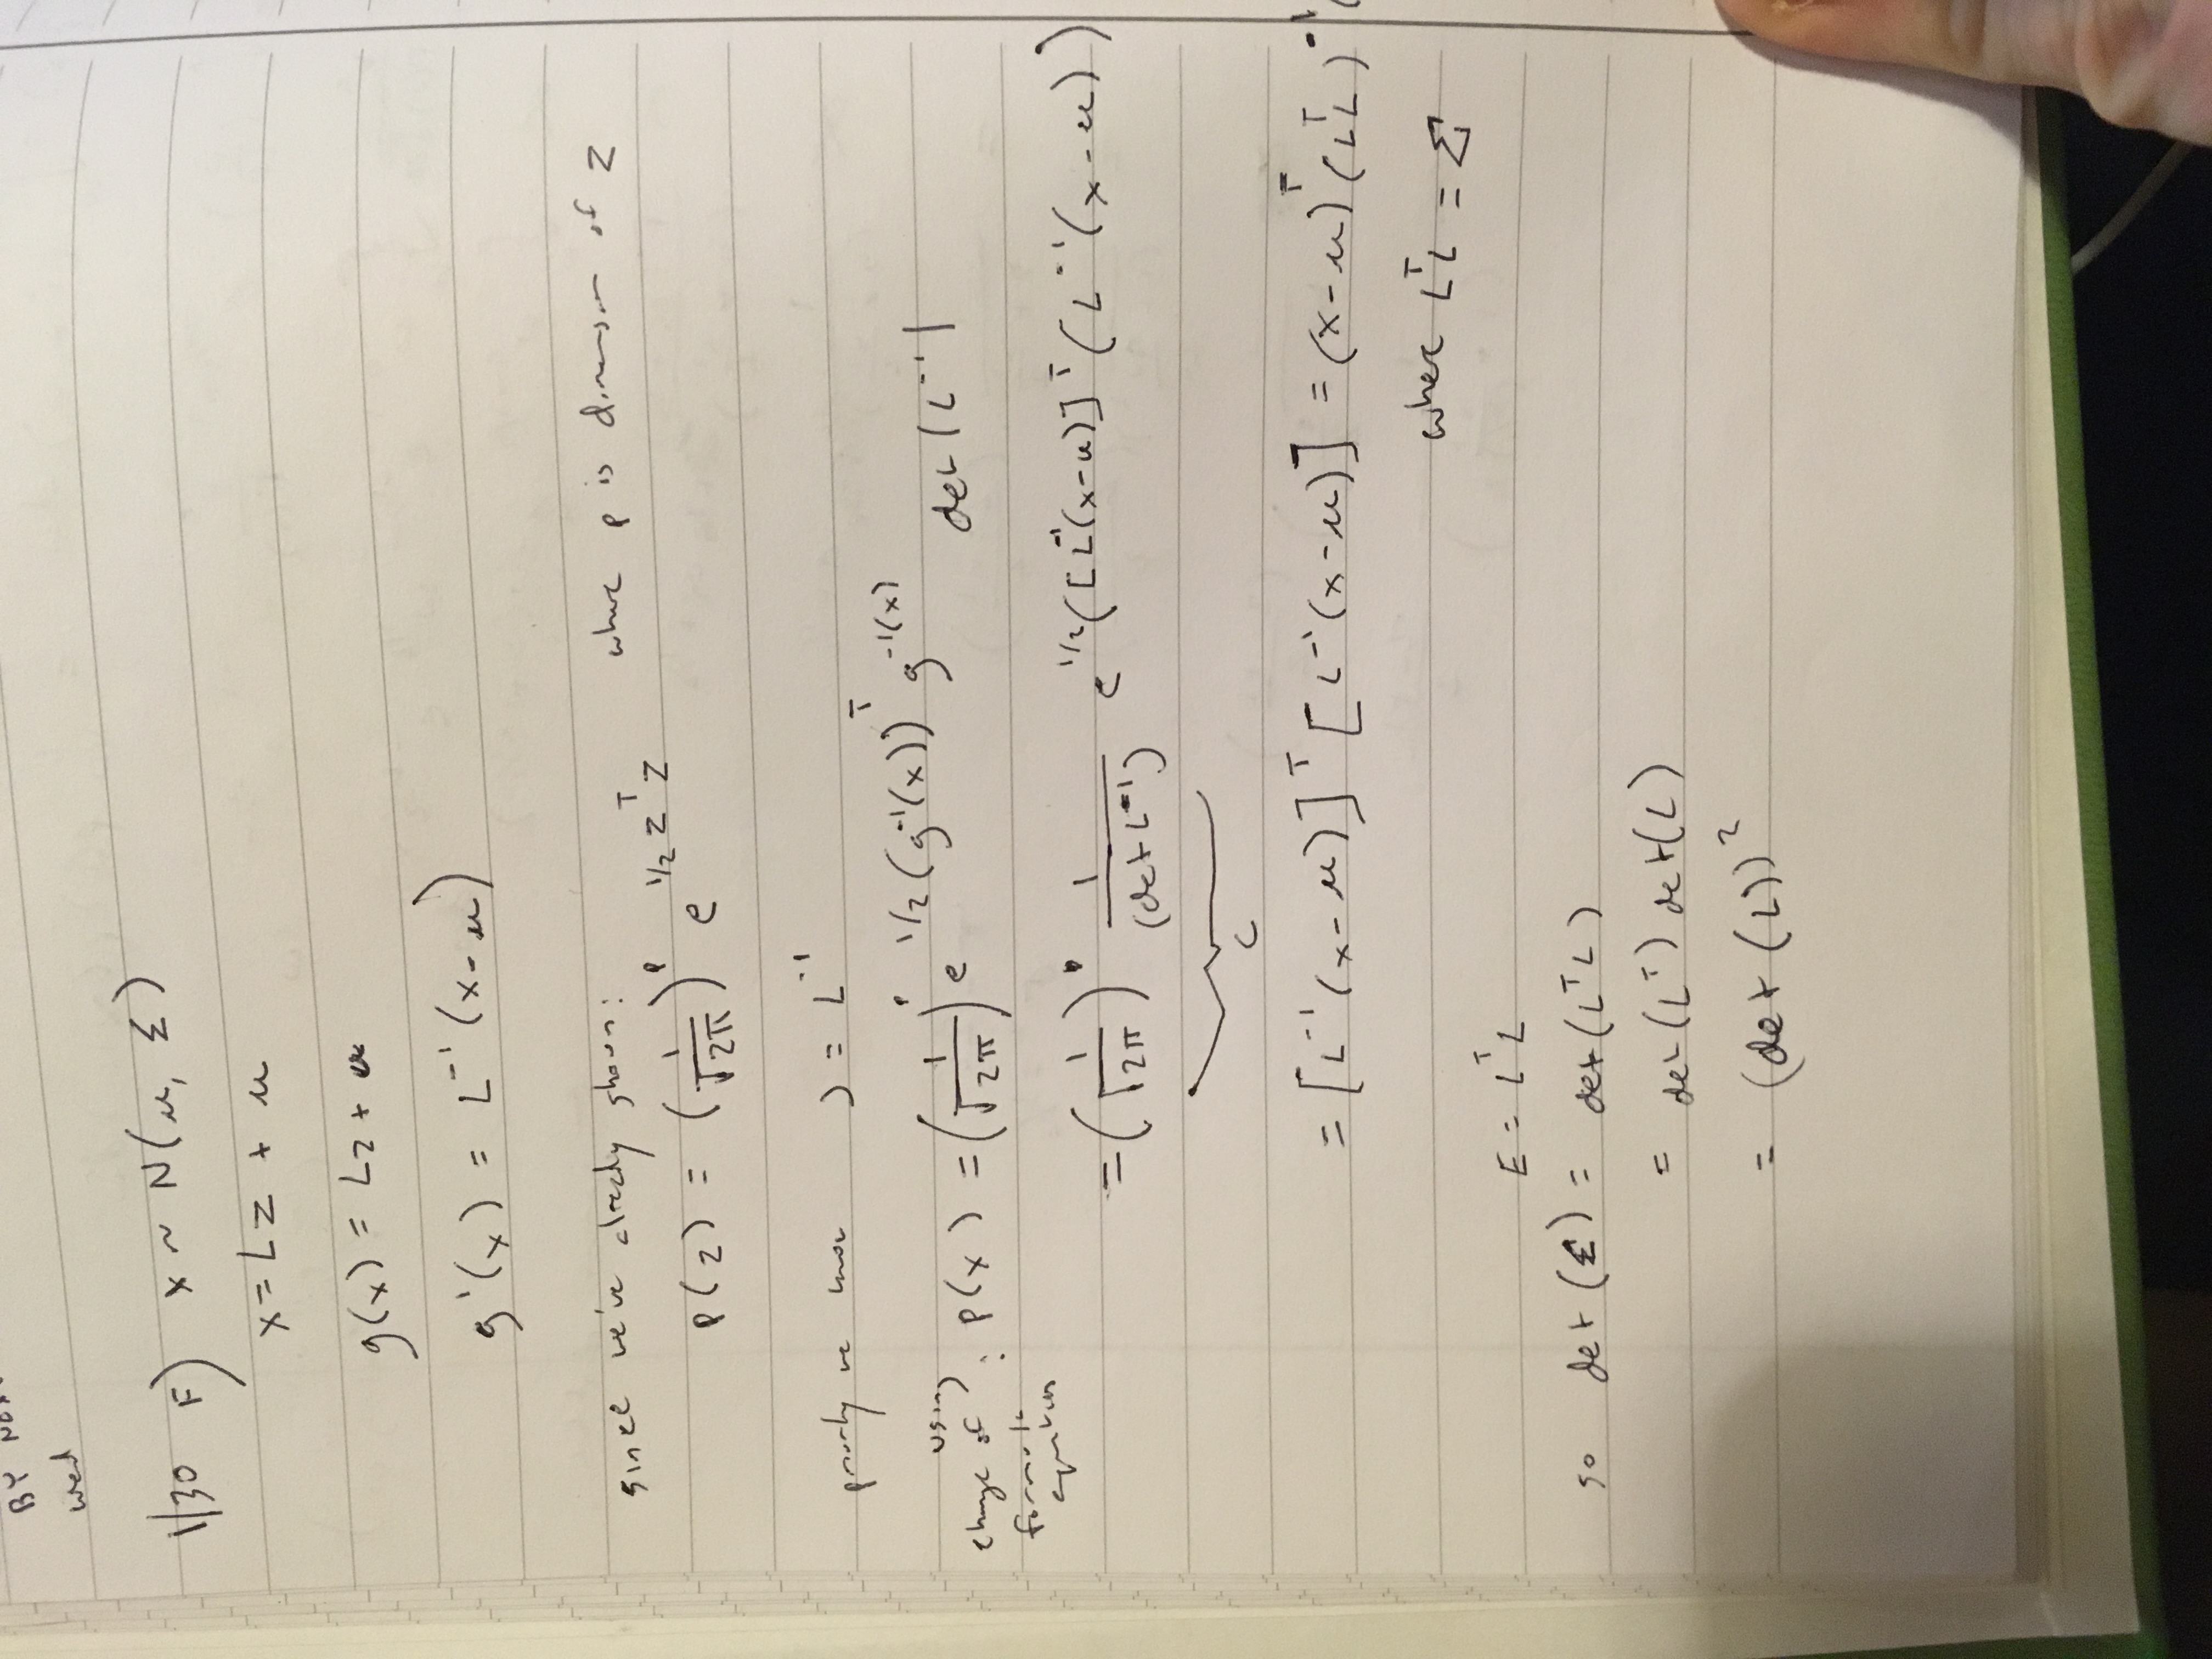 BY NEX
wed
1/30 F) x ~ N(μ, Σ)
x = Lz + μ
g(x) = Lz + μ
g'(x) = L⁻¹(x-μ)
since we've already shown: where p is dimension of z
p(z) = (1/√2π)ᵖ e^(1/2 zᵀz)
we know J = L⁻¹
using change of formula equation: p(x) = (1/√2π)ᵖ e^(1/2 (g⁻¹(x))ᵀ g⁻¹(x)) det(L⁻¹)
= (1/√2π)ᵖ 1/(det L⁻¹) e^(1/2([L⁻¹(x-μ)]ᵀ(L⁻¹(x-μ))
C
= [L⁻¹(x-μ)]ᵀ [L⁻¹(x-μ)] = (x-μ)ᵀ(LᵀL)⁻¹(
where LᵀL = Σ
E = LᵀL
so det(Σ) = det(LᵀL)
= det(Lᵀ) det(L)
= (det(L))²